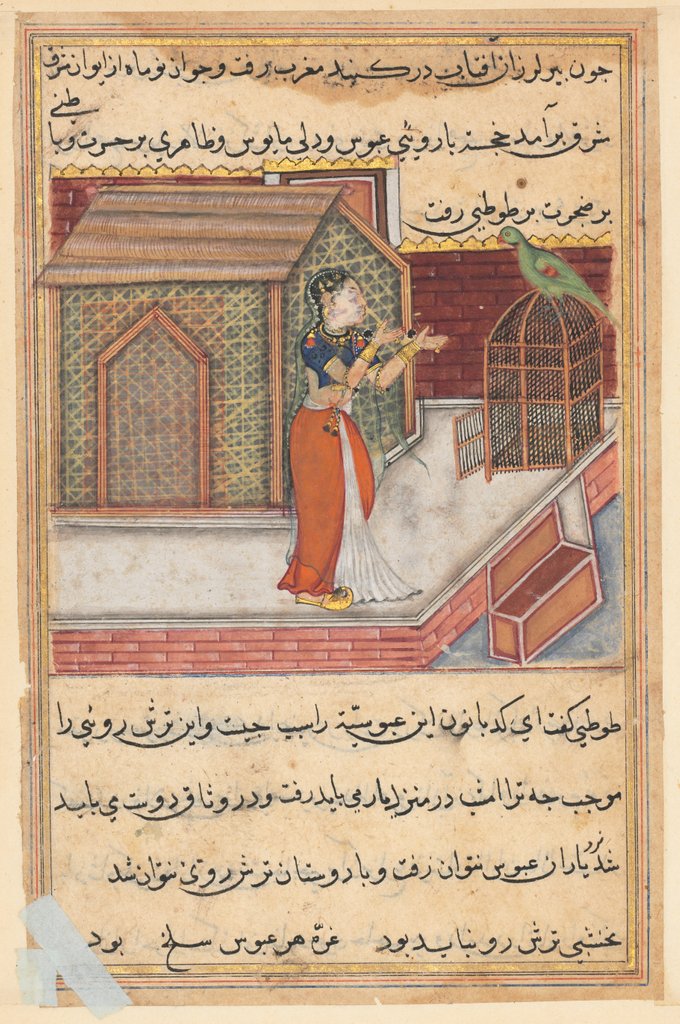 چون پیر لرزان آفتاب در کنبد مغرب رفت و جوان نو ماه از ایوان شرق
شرق برآمد خجسته با روئی عبوس و دلی مایوس و ظاهری بر حسرت و با طنی
بر ضجرت بر طوطی رفت
طوطی کفت ای کدبانو این عبوسیّة را سبب چیست و این ترش روئی را
موجب چه ترا امشب در منزل یار می باید رفت و در وثاق دوست می باید
شد نزد یاران عبوس نتوان رفت و با دوستان ترش روئی نتوان شد
نخشبی ترش رو نباید بود غرّه هر عبوس سلخ بود